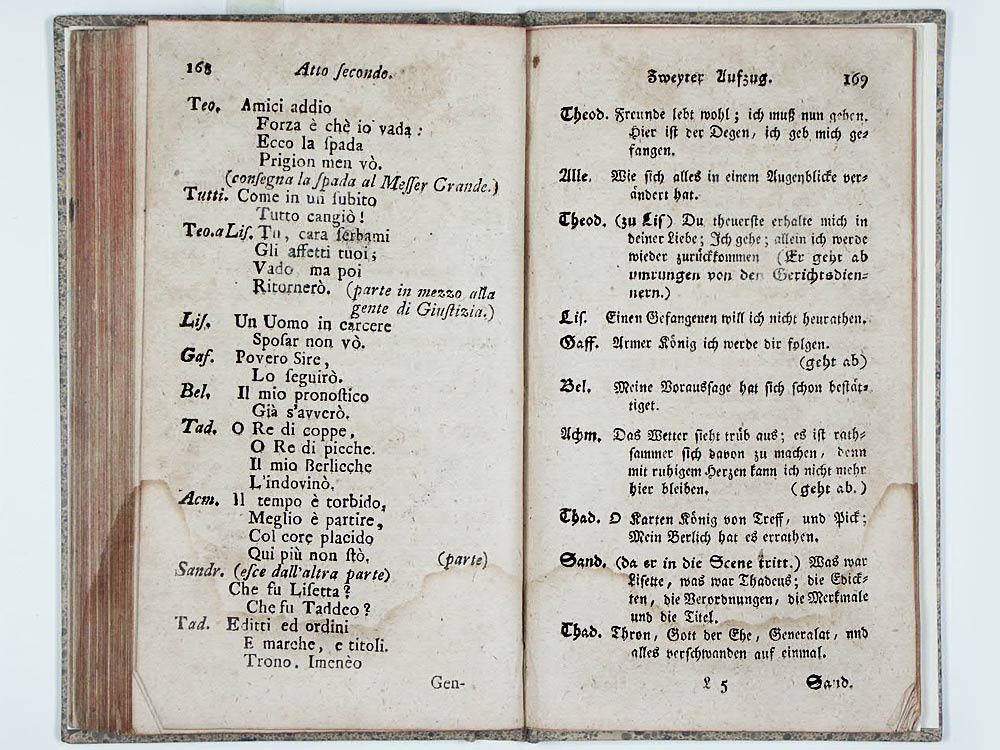 168 Atto ſecondo.
Teo. Amici addio
Forza è chè io vada:
Ecco la ſpada
Prigion men vò.
(conſegna la ſpada al Meſſer Grande.)
Tutti. Come in un ſubito
Tutto cangiò!
Teo.a Liſ. Tu, cara ſerbami
Gli affetti tuoi;
Vado ma poi
Ritornerò. (parte in mezzo alla
gente di Giuſtizia.)
Liſ. Un Uomo in carcere
Spoſar non vò.
Gaſ. Povero Sire,
Lo ſeguirò.
Bel. Il mio pronoſtico
Già s'avverò.
Tad. O Re di coppe,
O Re di picche.
Il mio Berlicche
L'indovinò.
Acm. Il tempo è torbido,
Meglio è partire,
Col core placido
Qui più non ſtò. (parte)
Sandr. (eſce dall'altra parte)
Che fu Liſetta?
Che fu Taddeo?
Tad. Editti ed ordini
E marche, e titoli.
Trono. Imenèo
Gen-
Zweyter Aufzug. 169
Theod. Freunde lebt wohl; ich muß nun gehen.
Hier iſt der Degen, ich geb mich ge=
fangen.
Alle. Wie ſich alles in einem Augenblicke ver=
ändert hat.
Theod. (zu Liſ) Du theuerſte erhalte mich in
deiner Liebe; Ich gehe; allein ich werde
wieder zurückkommen (Er geht ab
umrungen von den Gerichtsdien=
nern.)
Liſ. Einen Gefangenen will ich nicht heurathen.
Gaff. Armer König ich werde dir folgen.
(geht ab)
Bel. Meine Vorausſage hat ſich ſchon beſtät=
tiget.
Achm. Das Wetter ſieht trüb aus; es iſt rath=
ſammer ſich davon zu machen, denn
mit ruhigem Herzen kann ich nicht mehr
hier bleiben. (geht ab.)
Thad. O Karten König von Treff, und Pick;
Mein Berlich hat es errathen.
Sand. (da er in die Scene tritt.) Was war
Liſette, was war Thadeus; die Edick=
ten, die Verordnungen, die Merkmale
und die Titel.
Thad. Thron, Gott der Ehe, Generalat, nnd
alles verſchwanden auf einmal.
L 5 Sand.